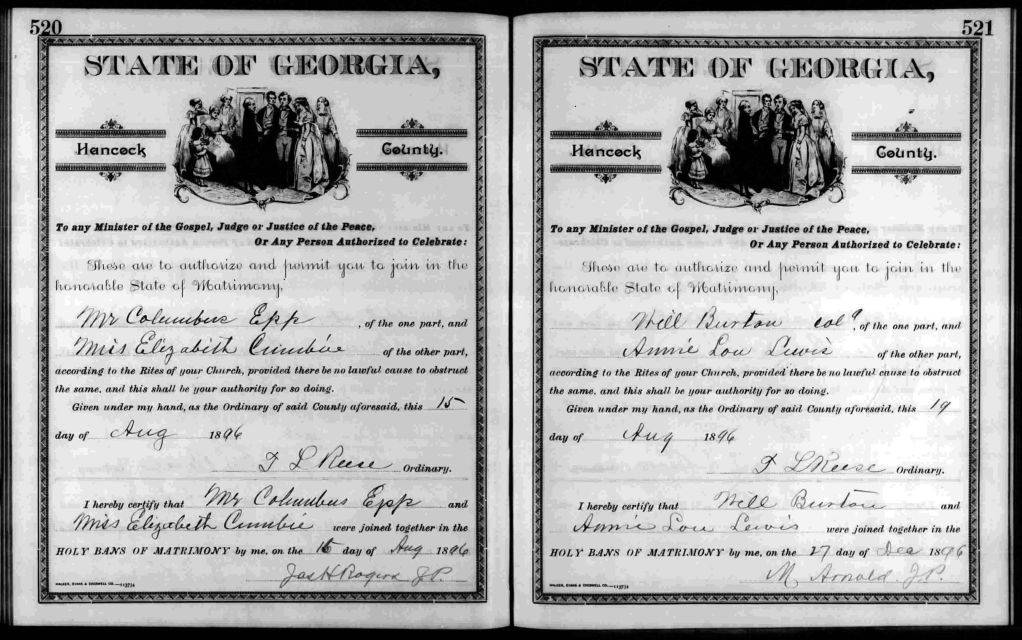 520
STATE OF GEORGIA,
Hancock County.
To any Minister of the Gospel, Judge or Justice of the Peace,
Or Any Person Authorized to Celebrate:
These are to authorize and permit you to join in the
honorable State of Matrimony,
Mr Columbus Epp, of the one part, and
Miss Elizabeth Cumbie of the other part,
according to the Rites of your Church, provided there be no lawful cause to obstruct
the same, and this shall be your authority for so doing.
Given under my hand, as the Ordinary of said County aforesaid, this 15
day of Aug 1896
T L Reese Ordinary.
I hereby certify that Mr Columbus Epp and
Miss Elizabeth Cumbie were joined together in the
HOLY BANS OF MATRIMONY by me, on the 15 day of Aug 1896
Jas H Rogers J.P.
WALKER, EVANS & COGSWELL CO.
521
STATE OF GEORGIA,
Hancock County.
To any Minister of the Gospel, Judge or Justice of the Peace,
Or Any Person Authorized to Celebrate:
These are to authorize and permit you to join in the
honorable State of Matrimony,
Will Burton cold, of the one part, and
Annie Lou Lewis of the other part,
according to the Rites of your Church, provided there be no lawful cause to obstruct
the same, and this shall be your authority for so doing.
Given under my hand, as the Ordinary of said County aforesaid, this 19
day of Aug 1896
T L Reese Ordinary.
I hereby certify that Will Burton and
Annie Lou Lewis were joined together in the
HOLY BANS OF MATRIMONY by me, on the 27 day of Dec 1896
M Arnold J.P.
WALKER, EVANS & COGSWELL CO.